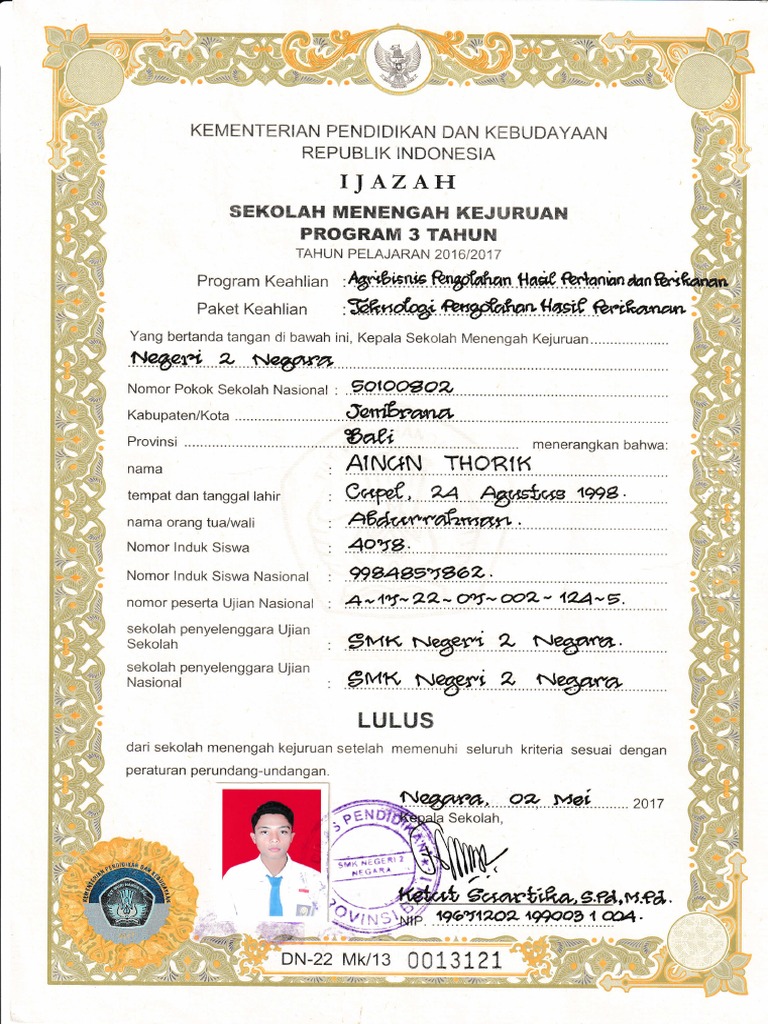 KEMENTERIAN PENDIDIKAN DAN KEBUDAYAAN
REPUBLIK INDONESIA
IJAZAH
SEKOLAH MENENGAH KEJURUAN
PROGRAM 3 TAHUN
TAHUN PELAJARAN 2016/2017
Program Keahlian : Agribisnis Pengolahan Hasil Pertanian dan Perikanan
Paket Keahlian : Teknologi Pengolahan Hasil Perikanan
Yang bertanda tangan di bawah ini, Kepala Sekolah Menengah Kejuruan
Negeri 2 Negara
Nomor Pokok Sekolah Nasional : 50100802
Kabupaten/Kota Jembrana
Provinsi Bali menerangkan bahwa:
nama : AINUN THORIK
tempat dan tanggal lahir : Cupel, 24 Agustus 1998.
nama orang tua/wali : Abdurrahman.
Nomor Induk Siswa : 4078.
Nomor Induk Siswa Nasional : 9984857862.
nomor peserta Ujian Nasional : 4~17~22~07~002~124~5.
sekolah penyelenggara Ujian
Sekolah : SMK Negeri 2 Negara.
sekolah penyelenggara Ujian
Nasional : SMK Negeri 2 Negara
LULUS
dari sekolah menengah kejuruan setelah memenuhi seluruh kriteria sesuai dengan
peraturan perundang-undangan.
Negara, 02 Mei 2017
Kepala Sekolah,
SMK NEGERI 2
NEGARA
Ketut Suartika, S.Pd, M.Pd.
NIP. 19671202 199003 1 004.
KEMENTERIAN PENDIDIKAN DAN KEBUDAYAAN
TUT WURI HANDAYANI
DN-22 Mk/13 0013121